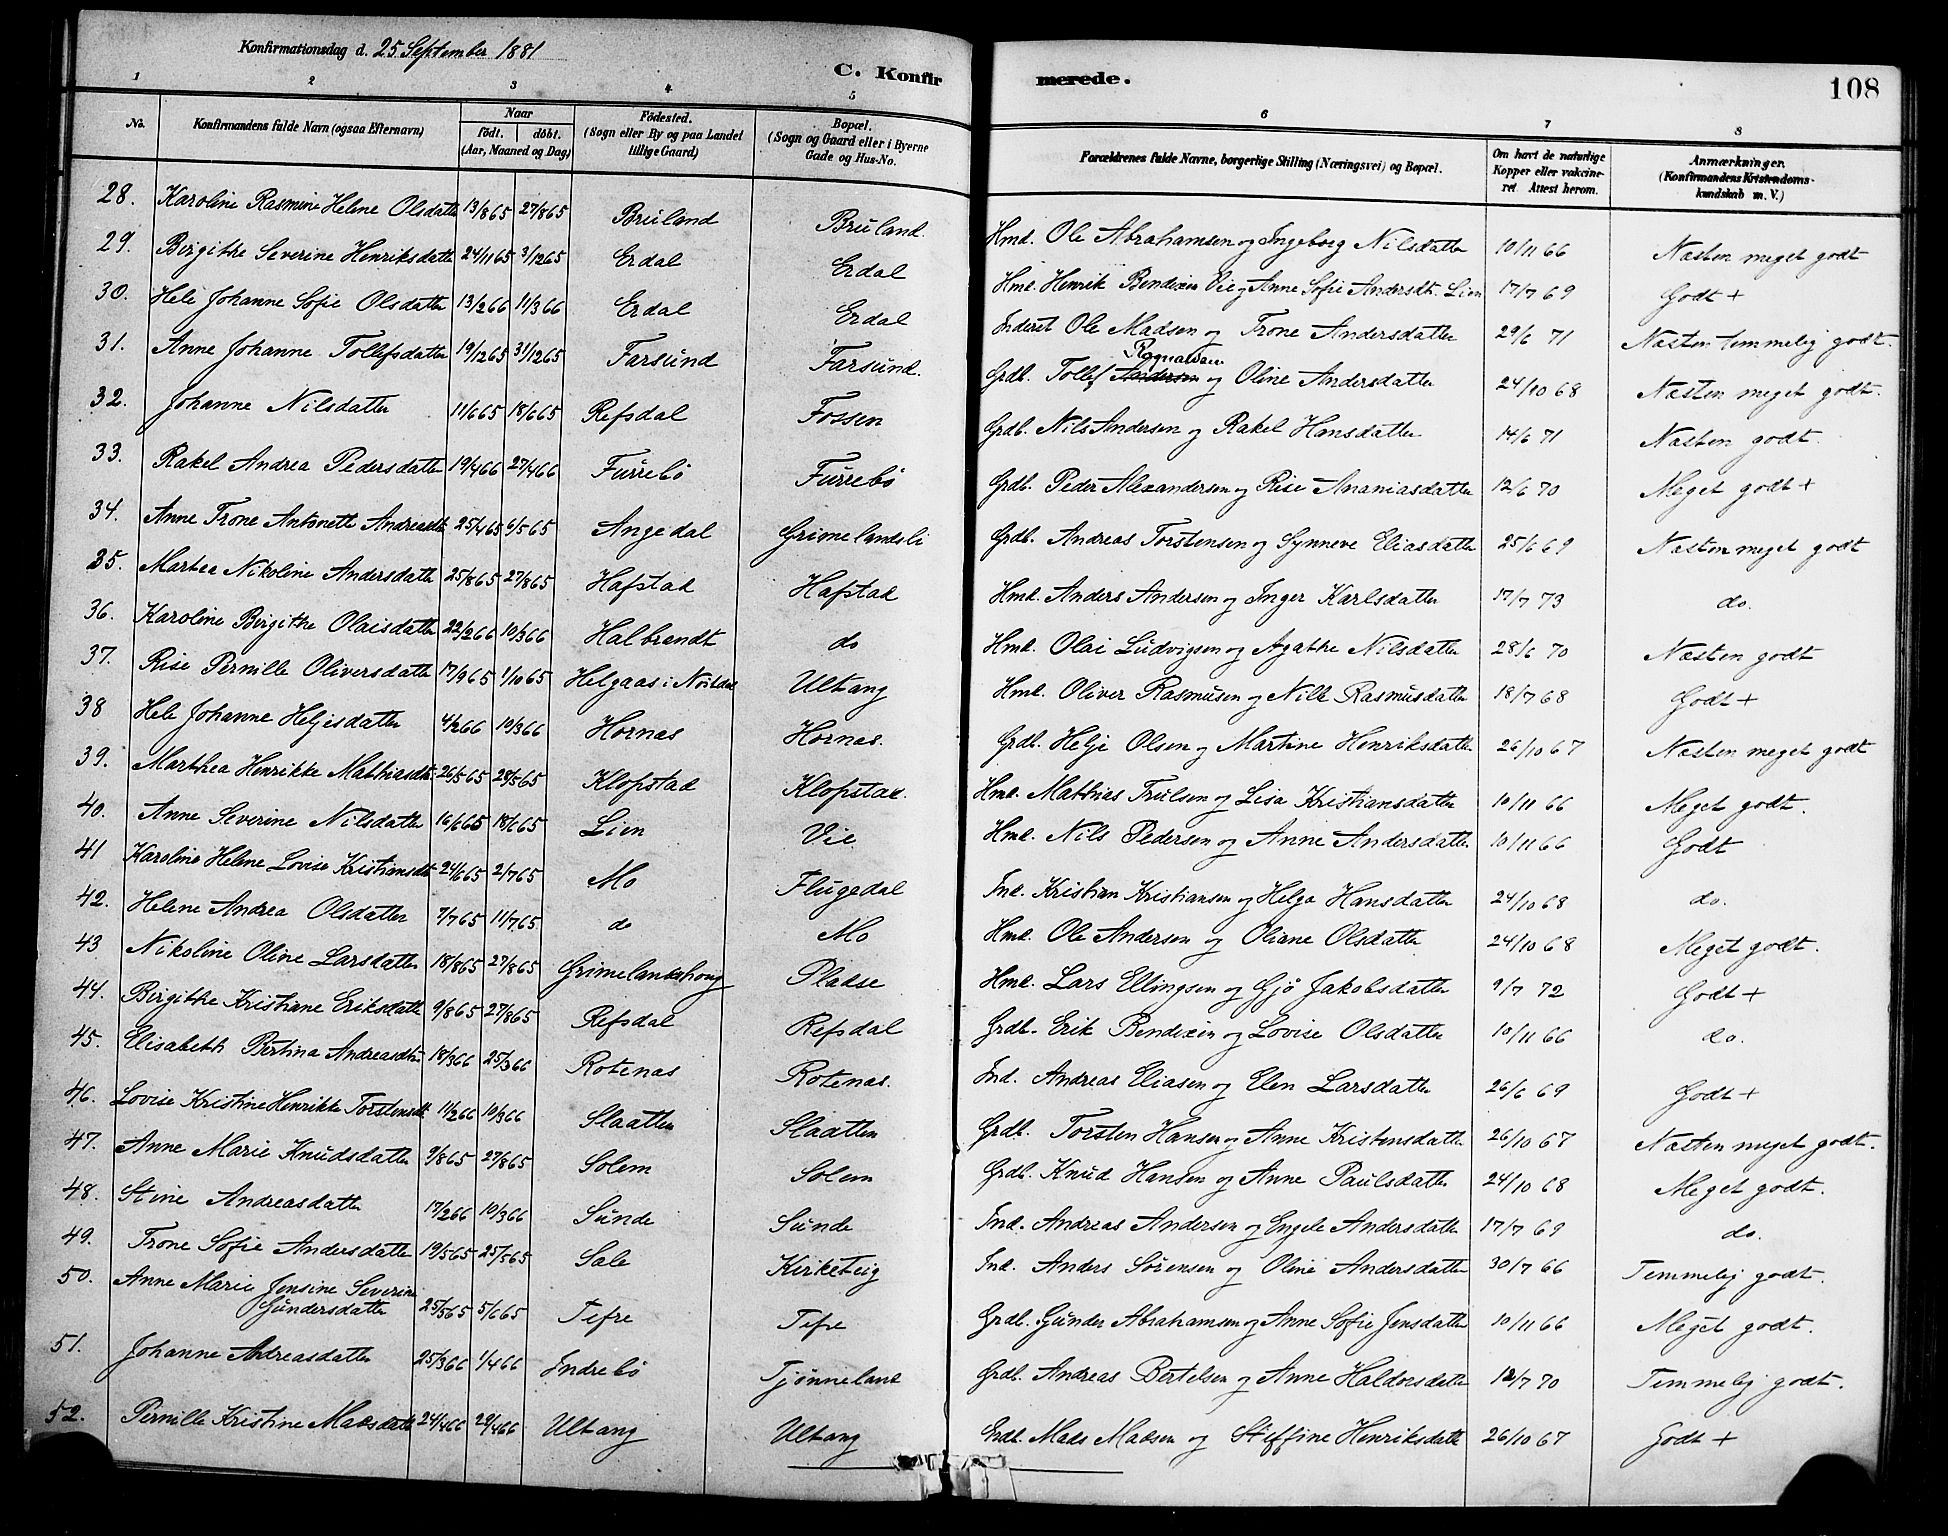 Konfirmationsdag d. 25 September 1881
C. Konfir merede. 108
1 2 3 4 5 6 7 8
No. Konfirmandens fulde Navn (ogsaa Efternavn) Naar født. døbt. (Aar, Maaned og Dag) Fødested. (Sogn eller By og paa Landet tillige Gaard) Bopæl. (Sogn og Gaard eller i Byerne Gade og Hus-No. Forældrenes fulde Navne, borgerlige Stilling (Næringsvei) og Bopæl. Om havt de naturlige Kopper eller vaccineret. Attest herom. Anmærkninger. (Konfirmandens Kristendomskundskab m. V.)
28. Karoline Rasmine Helene Olsdatter 13/8 65 27/8 65 Bruland Bruland. Hmd. Ole Abrahamsen og Ingeborg Nilsdatter 10/11 66 Næsten meget godt
29. Birgithe Severine Henriksdatter 24/11 65 3/12 65 Erdal Erdal Hmd. Henrik Bendixen Vie og Anne Sofie Andersdt. Lien 17/7 69 Godt +
30. Hele Johanne Sofie Olsdatter 13/2 66 11/3 66 Erdal Erdal Inderst Ole Madsen og Trone Andersdatter 29/6 71 Næsten temmelig godt.
31. Anne Johanne Tollefsdatter 19/12 65 31/12 65 Farsund Farsund. Grdb. Tollef Andersen Ragnaldsen og Oline Andersdatter 24/10 68 Næsten meget godt.
32. Johanne Nilsdatter 11/6 65 18/6 65 Refsdal Fossen Grdb. Nils Andersen og Rakel Hansdatter 14/6 71 Næsten godt.
33. Rakel Andrea Pedersdatter 19/4 66 27/4 66 Furrebø Furrebø Grdb. Peder Alexandersen og Rise Ananiasdatter 12/6 70 Meget godt +
34. Anne Trone Antonette Andreasdt 25/4 65 6/5 65 Angedal Grimelandsli Grdb. Andreas Torstensen og Synneve Eliasdatter 25/6 69 Næsten meget godt
35. Martea Nikoline Andersdatter 25/8 65 27/8 65 Hafstad Hafstad Hmd. Anders Andersen og Inger Karlsdatter 17/7 73 do.
36. Karoline Birgithe Olaisdatter 22/2 66 10/3 66 Halbrendt do Hmd. Olai Ludvigsen og Agathe Nilsdatter 28/6 70 Næsten godt
37. Rise Pernille Oliversdatter 17/9 65 1/10 65 Helgaas i Nøstdal Ultang Hmd. Oliver Rasmusen og Nille Rasmusdatter 18/7 68 Godt +
38 Hele Johanne Heljesdatter 4/2 66 10/3 66 Hornæs Hornæs. Grdb. Helje Olsen og Martine Henriksdatter 26/10 67 Næsten meget godt
39. Marthea Henrikke Mathiasdt 26/5 65 28/5 65 Klopstad Klopstad. Hmd. Mathias Trulsen og Lisa Kristiansdatter 10/11 66 Meget godt.
40. Anne Severine Nilsdatter 16/6 65 18/6 65 Lien Vie Hmd. Nils Pedersen og Anne Andersdatter 10/11 66 Godt
41 Karoline Helene Lovise Kristiansdt 24/6 65 2/7 65 Mo Flugedal Ind. Kristian Kristiansen og Helga Hansdatter 24/10 68 do.
42. Helene Andrea Olsdatter 7/7 65 11/7 65 do Mo Hmd. Ole Andersen og Oliane Olsdatter 24/10 68 Meget godt.
43 Nikoline Oline Larsdatter 18/8 65 27/8 65 Grimelandshoug Pladse Hmd. Lars Ellingsen og Gjø Jakobsdatter 9/7 72 Godt +
44. Birgithe Kristiane Eriksdatter 9/8 65 27/8 65 Refsdal Refsdal Grdb. Erik Bendixen og Lovise Olsdatter 10/11 66 do.
45. Elisabeth Bertina Andreasdtr 18/3 66 25/3 66 Rotenæs Rotenæs. Ind. Andreas Eliasen og Elen Larsdatter 26/6 69 Godt +
46. Lovise Kristine Henrikke Torstensdt 11/2 66 10/3 66 Slaatten Slaatten Grdb. Torsten Hansen og Anne Kristensdatter 26/10 67 Næsten meget godt.
47. Anne Marie Knudsdatter 9/8 65 27/8 65 Solem Solem Grdb. Knud Hansen og Anne Paulsdatter 24/10 68 Meget godt.
48. Stine Andreasdatter 17/2 66 10/3 66 Sunde Sunde Ind. Andreas Andersen og Engele Andersdatter 17/7 69 do.
49. Trone Sofie Andersdatter 19/5 65 25/5 65 Sale Kirketeig Ind. Anders Sørensen og Oline Andersdatter 30/7 66 Temmelig godt.
50. Anne Marie Jensine Severine
Gundersdatter 25/5 65 5/6 65 Tefre Tefre Grdb. Gunder Abrahamsen og Anne Sofie Jensdatter 10/11 66 Meget godt.
51. Johanne Andreasdatter 25/3 66 1/4 66 Indrebø Tjønneland Grdb. Andreas Bertelsen og Anne Haldorsdatter 12/7 70 Temmelig godt.
52. Pernille Kristine Madsdatter 24/4 66 29/4 66 Ultang Ultang Grdb. Mads Madsen og Steffine Henriksdatter 26/10 67 Godt +